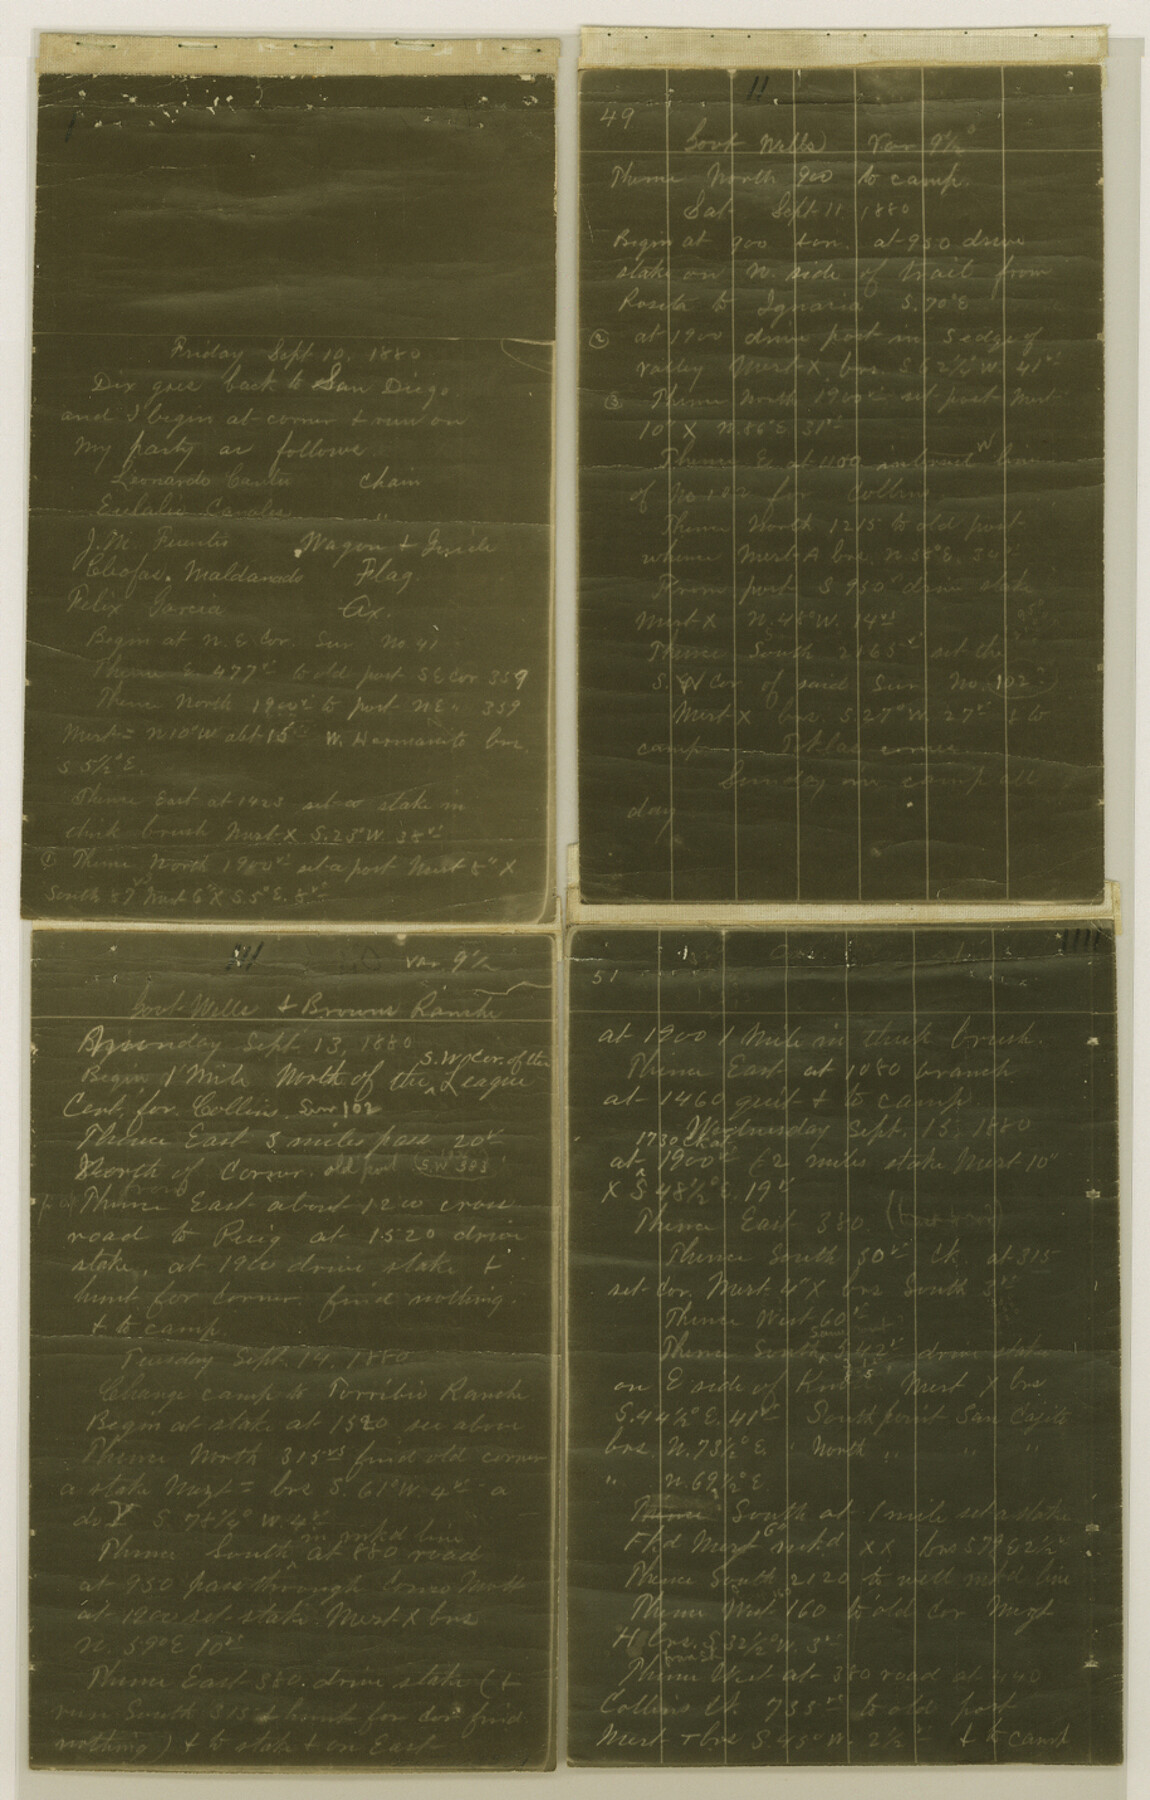 Friday Sept 10. 1880
Dix goes back to San Diego
and I begin at corner & run on
My party as follows
Leonardo Cantu Chain
Eulalio Canales "
J.M. Fuentes Wagon & Guide
Cleofas Maldanado Flag.
Felix Garcia Ax.
Begin at N.E Cor. Sur No 41
Thence E. 477 vs to old post SE Cor 359
Thence North 1900 vs to post NE " 359
Mezt = N10°W abt 15 vs W. Hermanito brs.
S 5½°E.
Thence East at 1423 set a stake in
thick brush Mezt X S.23°W. 38 vs
① Thence North 1900 vs set a post Mezt 8" X
South 57 vs Mezt 6" X S.5°E. 5 vs
11
49
Govt Wells Var 9½°
Thence North 900 to camp.
Sat. Sept 11 1880
Begin at 900 & on. at 950 drive
stake on N. side of trail from
Rosita to Ignaria S.70°E
② at 1900 drive post in S edge of
valley Mezt X brs. S 62½°W. 41 vs
③ Thence North 1900 vs set post Mezt
10" X N.86°E 31 vs
Thence E at 1109 intersect W line
of No 102 for Collins.
Thence North 1215 to old post
whence Mezt A brs. N.58°E. 34 vs
From post S 950 vs drive stake
Mezt X N.48°W. 14 vs
Thence South 2165 vs set the
S.W Cor of said Sur No. 102
Mezt X brs. S.27°W. 27 vs & to
camp
Sunday in camp all
day
111
Var. 9½
Govt Wells & Browns Ranche
Monday Sept 13, 1880
S.W Cor. of the
Begin 1 Mile North of the League
Cent. for Collins Sur 102
Thence East 3 miles pass 20 vs
North of Corner. old post (S.W 383)
Thence East about 1200 cross
road to Puig at 1520 drive
stake, at 1900 drive stake &
hunt for corner. find nothing.
& to camp.
Tuesday Sept. 14, 1880
Change camp to Torribio Ranche
Begin at stake at 1520 see above
Thence North 315 vs find old corner
a stake Mezt = brs S. 61°W. 4 vs a
do V S. 78½° W. 4 vs
in mrkd line
Thence South at 880 road
at 950 pass through
at 1900 set stake Mezt X brs
N. 59°E 10 vs
Thence East 380. drive stake (&
run South 315 & hunt for cor find
nothing) & to stake & on East
1111
51
at 1900 1 Mile in thick brush.
Thence East at 1080 branch
at 1460 quit & to camp.
Wednesday Sept. 15, 1880
1730 Ck at
at 1900 vs & 2 miles stake Mezt 10"
X S 48½°E. 19 vs
Thence East 380.
Thence South 50 vs Ck. at 315
set Cor. Mezt 4" X brs South 3 vs
Thence West 60 vs
Thence South 542 vs drive stake
on E side of Knoll Mezt X brs
S.44½°E. 41 vs South point San Cajito
brs. N.73½°E. " North " " "
" N.69½°E
Thence South at 1 mile set a stake
Fkd Mezt 6" mrkd XX
Thence South 2120 to well mrkd line
Thence West 160 to old Cor Mezt
H brs. S 32½°W. 3 vs
Thence West at 380 road at 440
Collins Ct. 735 vs to old post
Mezt T brs S.45°W. 2½ vs & to camp